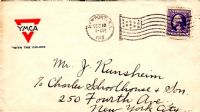 YMCA
"WITH THE COLORS"
Mr. J. Runsheim
To Charles Schoolhouse & Son.
250 Fourth Ave
New York City